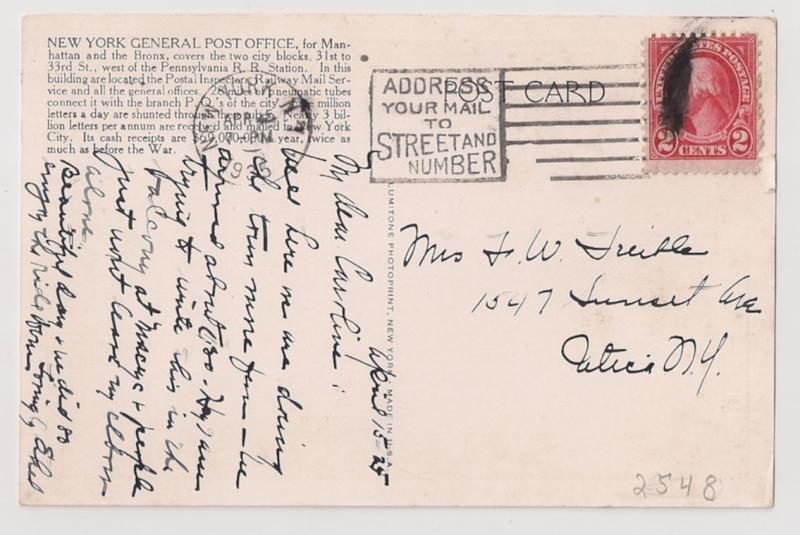 NEW YORK GENERAL POST OFFICE, for Man-
hattan and the Bronx, covers the two city blocks, 31st to
33rd St., west of the Pennsylvania R. R. Station. In this
building are located the Postal Inspectors, Railway Mail Ser-
vice and all the general offices. 28 miles of pneumatic tubes
connect it with the branch P. O.'s of the city. million
letters a day are shunted through the Nearly 3 bil-
lion letters per annum are received and mailed in New York
City. Its cash receipts are a year, twice as
much as before the War.
APR 15
PM
ADDRESS
YOUR MAIL
TO
STREET AND
NUMBER
POST CARD
UNITED STATES POSTAGE
2 CENTS 2
LUMITONE PHOTOPRINT, NEW YORK. MADE IN U.S.A.
April 15 - 25
My dear Caroline:
Well here we are doing
the town once more - we
arrived about 1:30. Hay I am
trying to write this in the
balcony at Macys & people
just wont leave my elbow
alone.
Beautiful day & we did so
enjoy the ride down. Lovingly Ethel
Mrs F. W. Treible
1547 Sunset Ave
Utica N.Y.
2548